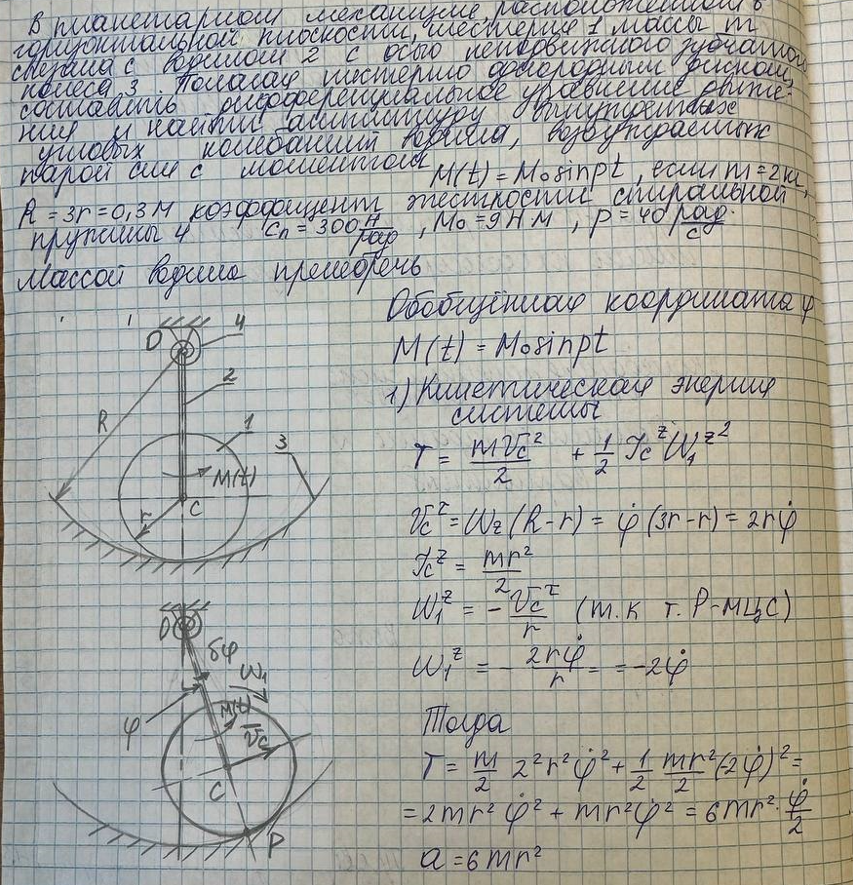 В планетарном механизме, расположенном в
горизонтальной плоскости, шестерня 1 массы m
связана с водилом 2 с осью неподвижного зубчатого
колеса 3. Полагая шестерню однородным диском,
составить дифференциальное уравнение движе-
ния и найти амплитуду вынужденных
угловых колебаний водила, возбуждаемых
парой сил с моментом M(t) = M₀sinpt, если m = 2кг,
R = 3r = 0,3м коэффициент жесткости спиральной
пружины 4 Cп = 300 Н/рад, M₀ = 9 Н м, p = 40 рад/с.
Массой водила пренебречь
Обобщённая координата φ
M(t) = M₀sinpt
1) Кинетическая энергия
системы
T = mVc²/2 + 1/2 Jc^z W₁^z²
Vc^τ = W₂(R-r) = φ̇(3r-r) = 2rφ̇
Jc^z = mr²/2
W₁^z = - Vc^τ/r (т.к т. P-МЦС)
W₁^z = - 2rφ̇/r = = -2φ̇
Тогда
T = m/2 2²r²φ̇² + 1/2 mr²/2 (2φ̇)² =
= 2mr²φ̇² + mr²φ̇² = 6mr² · φ̇/2
a = 6mr²
O
4
2
R
1
3
M(t)
C
r
O
δφ
W₁
φ
M(t)
Vc
C
P